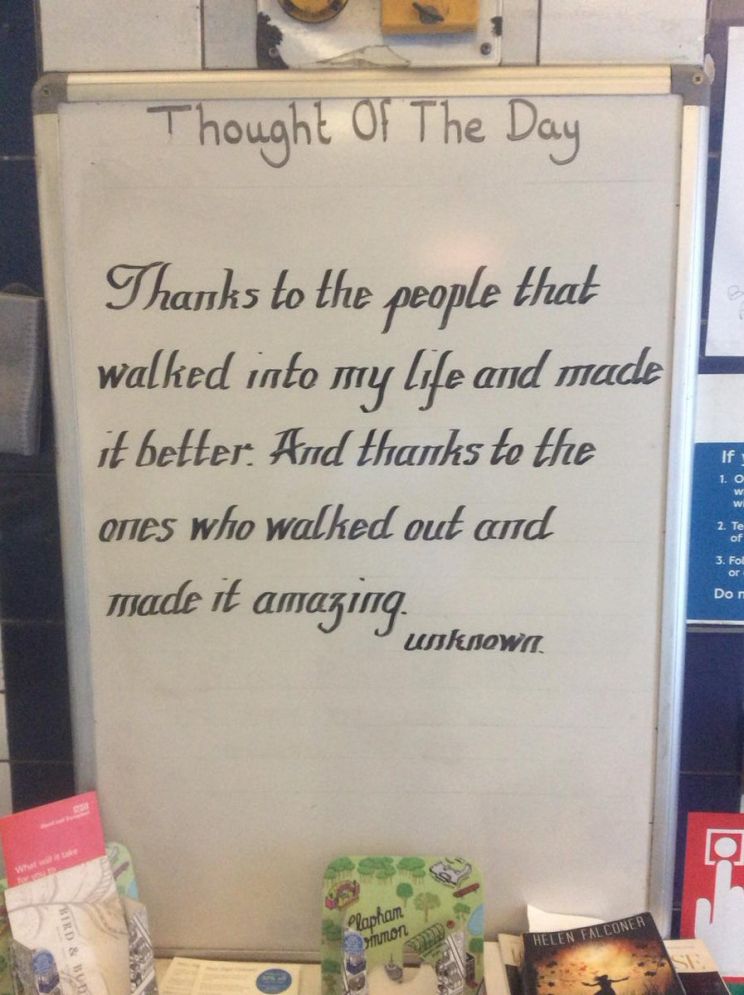 Thought Of The Day
Thanks to the people that
walked into my life and made
it better. And thanks to the
ones who walked out and
made it amazing.
unknown.
If
1. O
w
wi
2. Te
of
3. Fol
or
Do n
NHS
What will it take
for you to
BIRD & BU
Clapham
Common
HELEN FALCONER
SE